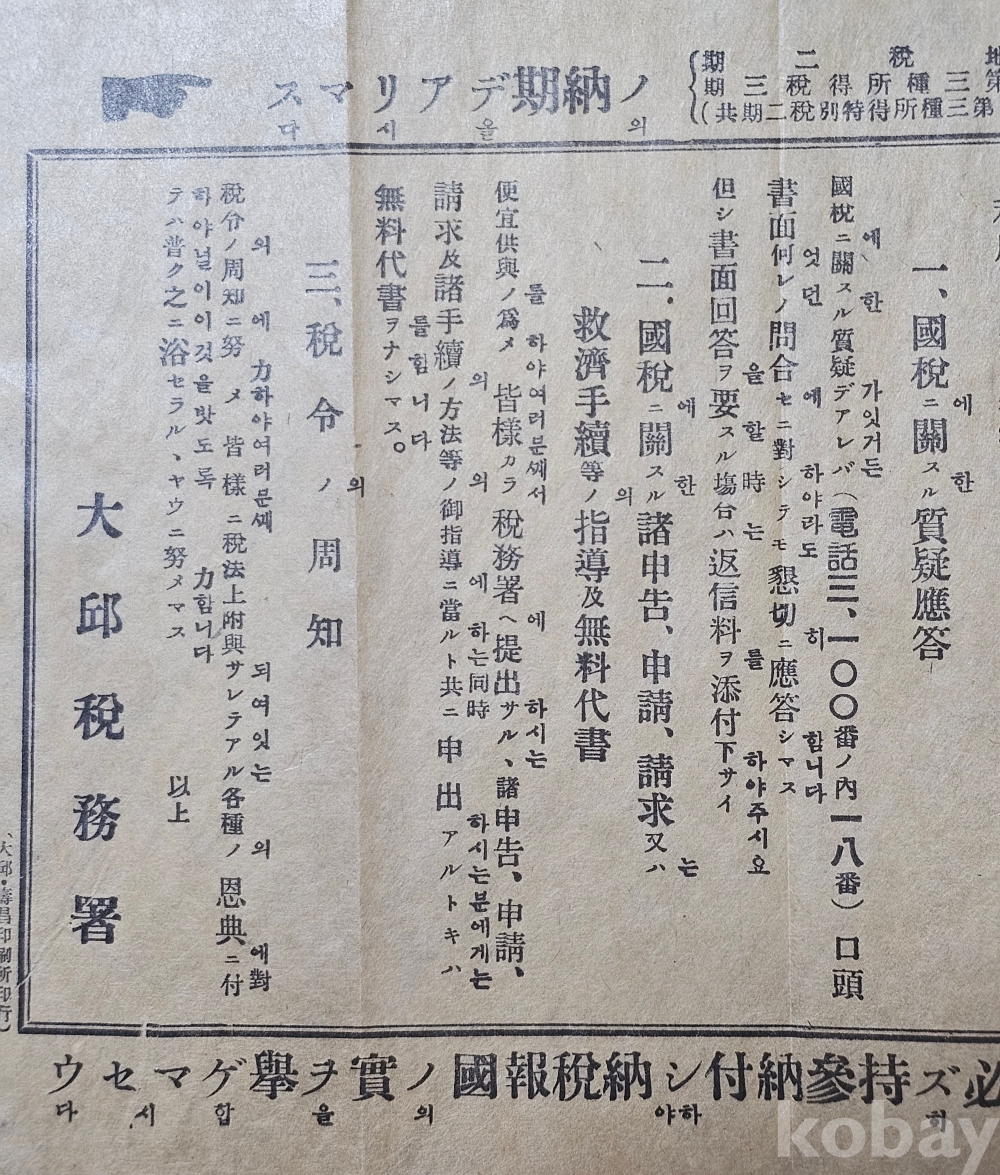 地税二期
第三種所得税三期
第三種所得特別税二期共)
ノ納期デアリマス
의 을 시 다
一、國稅ニ關スル質疑應答
에 한
國稅ニ關スル質疑デアレバ(電話三、一〇〇番ノ內一八番)口頭
에 한 가잇거든
書面何レノ問合セニ對シテモ懇切ニ應答シマス
엇던 에 하야라도 히 합니다
但シ書面回答ヲ要スル塲合ハ返信料ヲ添付下サイ
을 할 時는 를 하야주시요
二、國稅ニ關スル諸申告、申請、請求又ハ
에 한 는
救濟手續等ノ指導及無料代書
의
便宜供與ノ爲メ皆樣カラ稅務署ヘ提出サル、諸申告、申請、
를 하야여러분쎄서 에 하시는
請求及諸手續ノ方法等ノ御指導ニ當ルト共ニ申出アルトキハ
의 의 에 하는同時 하시는분에게는
無料代書ヲナシマス。
를 합니다
三、稅令ノ周知
의
稅令ノ周知ニ努メ皆樣ニ稅法上附與サレテアル各種ノ恩典ニ付
의 에 力하야여러분쎄 되여잇는 의 에對
テハ普ク之ニ浴セラル、ヤウニ努メマス
하야널이이것을밧도록 力합니다
以上
大邱稅務署
(大邱・壽昌印刷所印行)
必ズ持參納付シ納稅報國ノ實ヲ擧ゲマセウ
히 하야 의 을 합시다
kobay